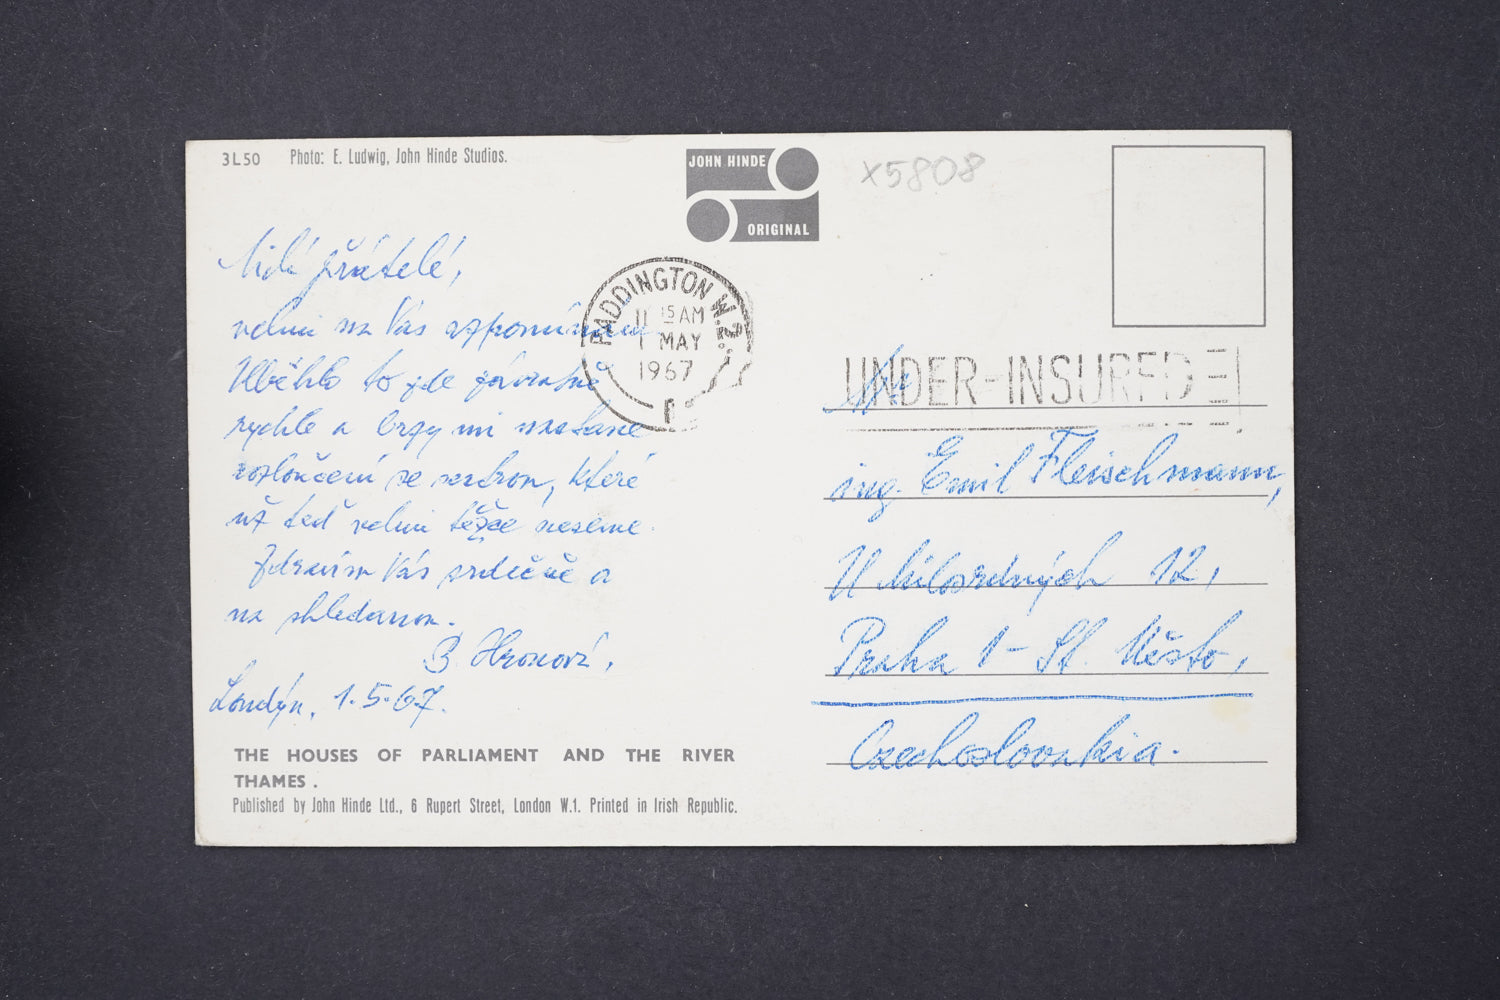 3L50 Photo: E. Ludwig, John Hinde Studios.
JOHN HINDE
ORIGINAL
X5808
Milí přátelé,
velmi na Vás vzpomínám
Uběhlo to zde závratně
rychle a brzy mi nastane
rozloučení se sestrou, které
už teď velmi těžce neseme
Zdravím Vás srdečně a
na shledanou.
B. Hronová,
Londýn, 1.5.67.
THE HOUSES OF PARLIAMENT AND THE RIVER
THAMES.
Published by John Hinde Ltd., 6 Rupert Street, London W.1. Printed in Irish Republic.
PADDINGTON W.2.
11 15 AM
1 MAY
1967
UNDER-INSURED
ing. Emil Fleischmann,
U Milosrdných 12,
Praha 1 - St. Město,
Czechoslovakia.